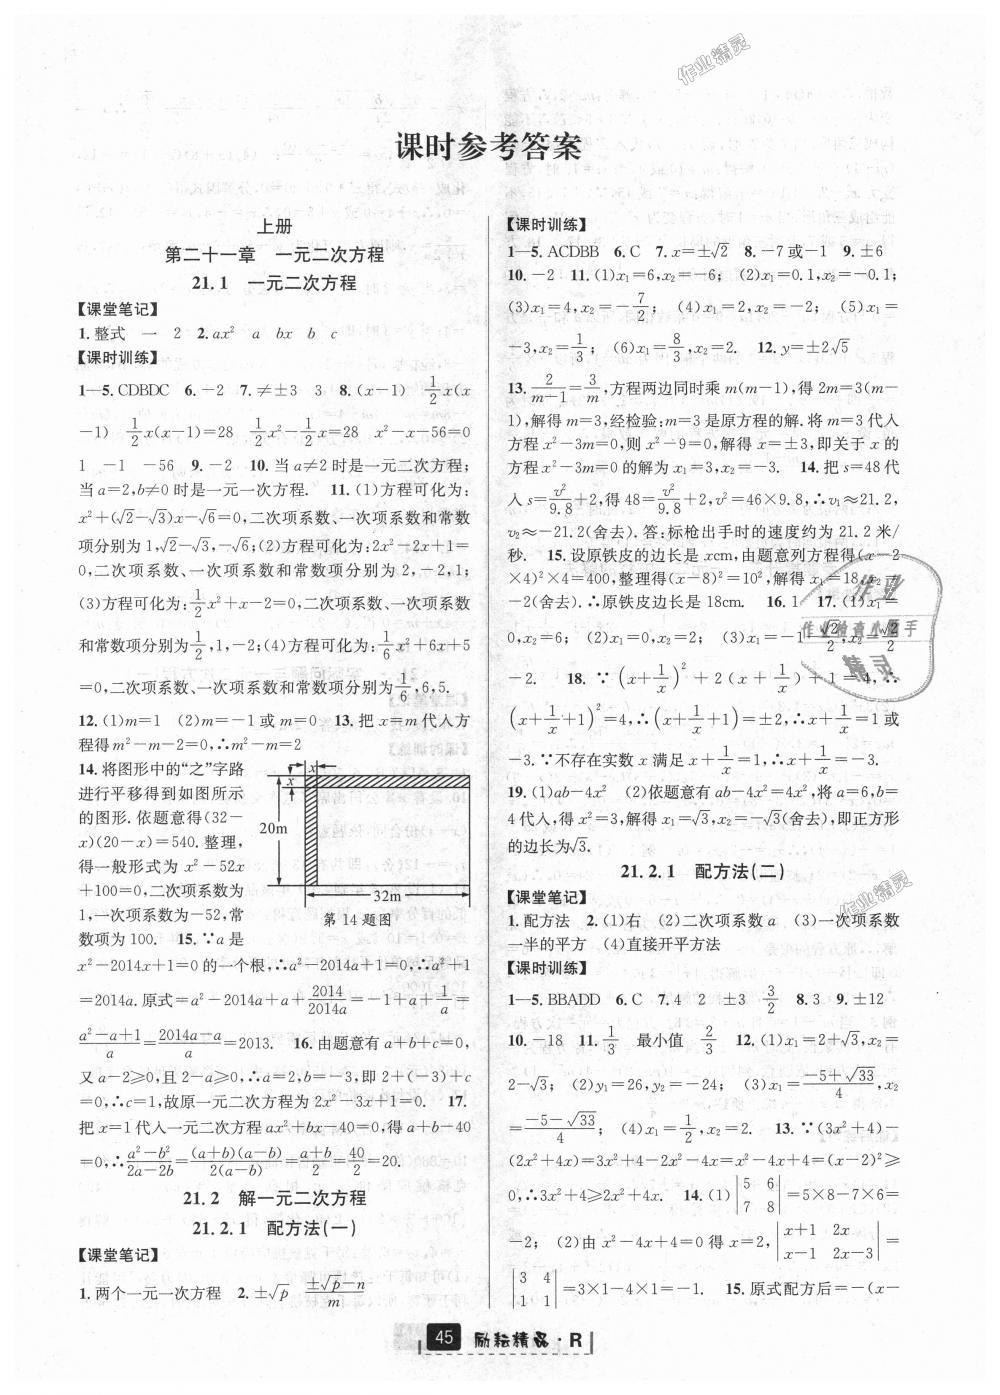 课时参考答案
上册
第二十一章　一元二次方程
21.1　一元二次方程
【课堂笔记】
1.整式　一　2　2.ax²　a　bx　b　c
【课时训练】
1—5.CDBDC　6.－2　7.≠±3　3　8.(x－1)　1/2x(x
－1)　1/2x(x－1)＝28　1/2x²－1/2x＝28　x²－x－56＝0
1　－1　－56　9.－2　10.当a≠2时是一元二次方程;
当a＝2,b≠0时是一元一次方程.　11.(1)方程可化为:
x²＋(√2－√3)x－√6＝0,二次项系数、一次项系数和常数
项分别为1,√2－√3,－√6;(2)方程可化为:2x²－2x＋1＝
0,二次项系数、一次项系数和常数项分别为2,－2,1;
(3)方程可化为:1/2x²＋x－2＝0,二次项系数、一次项系数
和常数项分别为1/2,1,－2;(4)方程可化为:1/6x²＋6x＋5
＝0,二次项系数、一次项系数和常数项分别为1/6,6,5.
12.(1)m＝1　(2)m＝－1或m＝0　13.把x＝m代入方
程得m²－m－2＝0,∴m²－m＝2
14.将图形中的“之”字路
进行平移得到如图所示
的图形.依题意得(32－
x)(20－x)＝540.整理,
得一般形式为x²－52x
＋100＝0,二次项系数为
1,一次项系数为－52,常
数项为100.　15.∵a是
x
x
20m
32m
第14题图
x²－2014x＋1＝0的一个根,∴a²－2014a＋1＝0,∴a²＋1
＝2014a.原式＝a²－2014a＋a＋2014/2014a＝－1＋a＋1/a＝
(a²－a＋1)/a＝(2014a－a)/a＝2013.　16.由题意有a＋b＋c＝0,
又a－2≥0,且2－a≥0,∴a＝2,b＝－3,即2＋(－3)＋c
＝0,∴c＝1,故原一元二次方程为2x²－3x＋1＝0.　17.
把x＝1代入一元二次方程ax²＋bx－40＝0,得a＋b－40
＝0,∴(a²－b²)/(2a－2b)＝(a＋b)(a－b)/2(a－b)＝(a＋b)/2＝40/2＝20.
21.2　解一元二次方程
21.2.1　配方法(一)
【课堂笔记】
1.两个一元一次方程　2.±√p　(±√p－n)/m
【课时训练】
1—5.ACDBB　6.C　7.x＝±√2　8.－7或－1　9.±6
10.－2　11.(1)x₁＝6,x₂＝－6;　(2)x₁＝0.1,x₂＝－0.1;
(3)x₁＝4,x₂＝－7/2;　(4)x₁＝2,x₂＝－2;　(5)x₁＝
－3,x₂＝1/3;　(6)x₁＝8/3,x₂＝2.　12.y＝±2√5
13.2/(m－1)＝3/m,方程两边同时乘m(m－1),得2m＝3(m－
1),解得m＝3,经检验:m＝3是原方程的解.将m＝3代入
方程x²－3m＝0,则x²－9＝0,解得x＝±3,即关于x的
方程x²－3m＝0的解为x₁＝3,x₂＝－3.　14.把s＝48代
入s＝v²/9.8＋2,得48＝v²/9.8＋2,v²＝46×9.8,∴v₁≈21.2,
v₂≈－21.2(舍去).答:标枪出手时的速度约为21.2米/
秒.　15.设原铁皮的边长是xcm,由题意列方程得(x－2
×4)²×4＝400,整理得(x－8)²＝10²,解得x₁＝18,x₂＝
－2(舍去).∴原铁皮的边长是18cm.　16.1　17.(1)x₁＝
0,x₂＝6;　(2)x₁＝2,x₂＝－2;　(3)x₁＝－1＋√2/2,x₂＝
－2.　18.∵(x＋1/x)²＋2(x＋1/x)＋1＝4,∴
(x＋1/x＋1)²＝4,∴(x＋1/x＋1)＝±2,∴x＋1/x＝1或
－3.∵不存在实数x满足x＋1/x＝1,∴x＋1/x＝－3.
19.(1)ab－4x²　(2)依题意有ab－4x²＝4x²,将a＝6,b＝
4代入,得x²＝3,解得x₁＝√3,x₂＝－√3(舍去),即正方形
的边长为√3.
21.2.1　配方法(二)
【课堂笔记】
1.配方法　2.(1)右　(2)二次项系数a　(3)一次项系数
一半的平方　(4)直接开平方法
【课时训练】
1—5.BBADD　6.C　7.4　2　±3　3/2　8.3　9.±12
10.－18　11.1/3　最小值　2/3　12.(1)x₁＝2＋√3,x₂＝
2－√3;　(2)y₁＝26,y₂＝－24;　(3)x₁＝(－5＋√33)/4,x₂
＝(－5－√33)/4;　(4)x₁＝1/2,x₂＝2.　13.∵(3x²＋4)－
(2x²＋4x)＝3x²＋4－2x²－4x＝x²－4x＋4＝(x－2)²≥
0,∴3x²＋4≥2x²＋4x.　14.(1)|5 6; 7 8|＝5×8－7×6＝
－2;　(2)由x²－4x＋4＝0得x＝2,|x＋1 2x; x－1 2x－3|＝
|3 4; 1 1|＝3×1－4×1＝－1.　15.原式配方后＝－(x－
45　励耘精品·R
作业精灵
作业
作业检查小助手
精灵
作业精灵